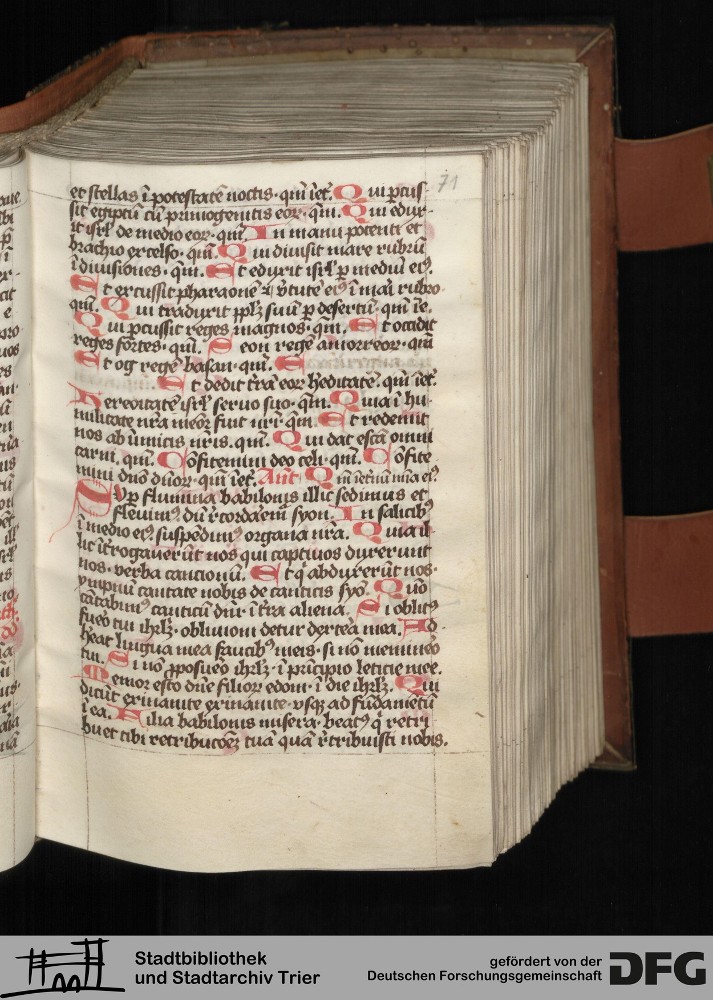 71
et stellas ī potestatē noctis · qm̄ īet̄. Qui p̄cus-
sit egiptū cū primogenitis eor · qm̄. Qui edux-
it isrl̄ de medio eor · qm̄. In manu potenti et
brachio excelso · qm̄. Qui diuisit mare rubrū
ī diuisiones · qm̄. Et eduxit isrl̄ p mediū eiꝰ.
Et excussit pharaonē ⁊ v̄tutē eiꝰ ī mari rubro
qm̄. Qui traduxit pplꝫ suū p desertū · qm̄ īe.
Qui p̄cussit reges magnos · qm̄. Et occidit
reges fortes · qm̄. Seon regē amorreor · qm̄
Et og regē basan · qm̄. Et
Et dedit t̄rā eor h̓editatē · qm̄ īet̄.
Hereditatē isrl̄ seruo suo · qm̄. Quia ī hu-
militate nr̄a meōr fuit nr̄i · qm̄. Et redemit
nos ab inimicis nr̄is · qm̄. Qui dat escā omni
carni · qm̄. Cōfitemini deo celi · qm̄. Cōfite
mini dn̄o dn̄or · qm̄ īet̄. Ant̄ Qm̄ īet̄nū mīa eiꝰ
Sup flumina babilonis illic sedimus et
fleuimꝰ dū r̄cordarem̄ syon. In salicibꝰ
ī medio eiꝰ suspēdimꝰ organa nr̄a. Quia il-
lic īt̄rogauerūt nos qui captiuos duxerunt
nos · verba cancionū. Et q̄ abduxerūt nos ·
ympnū cantate nobis de canticis syō. Quō
cātabimꝰ canticū dn̄i · ī t̄ra aliena. Si oblitꝰ
fuero tui ihrlꝫ · obliuioni detur dextea mea. Ad-
h̓eat lingua mea faucibꝰ meis · si nō meminero
tui. Si nō p̱posuero ihrlꝫ · ī pn̄cipio leticie mee.
Memor esto dn̄e filior edom · ī die ihrlꝫ. Qui
dicūt exinanite exinanite · vsqꝫ ad fūdamētū
ī ea. Filia babilonis misera · beatꝰ q̄ retri
buet tibi retribucōeꝫ tuā quā r̄tribuisti nobis.
Stadtbibliothek
und Stadtarchiv Trier
gefördert von der
Deutschen Forschungsgemeinschaft DFG